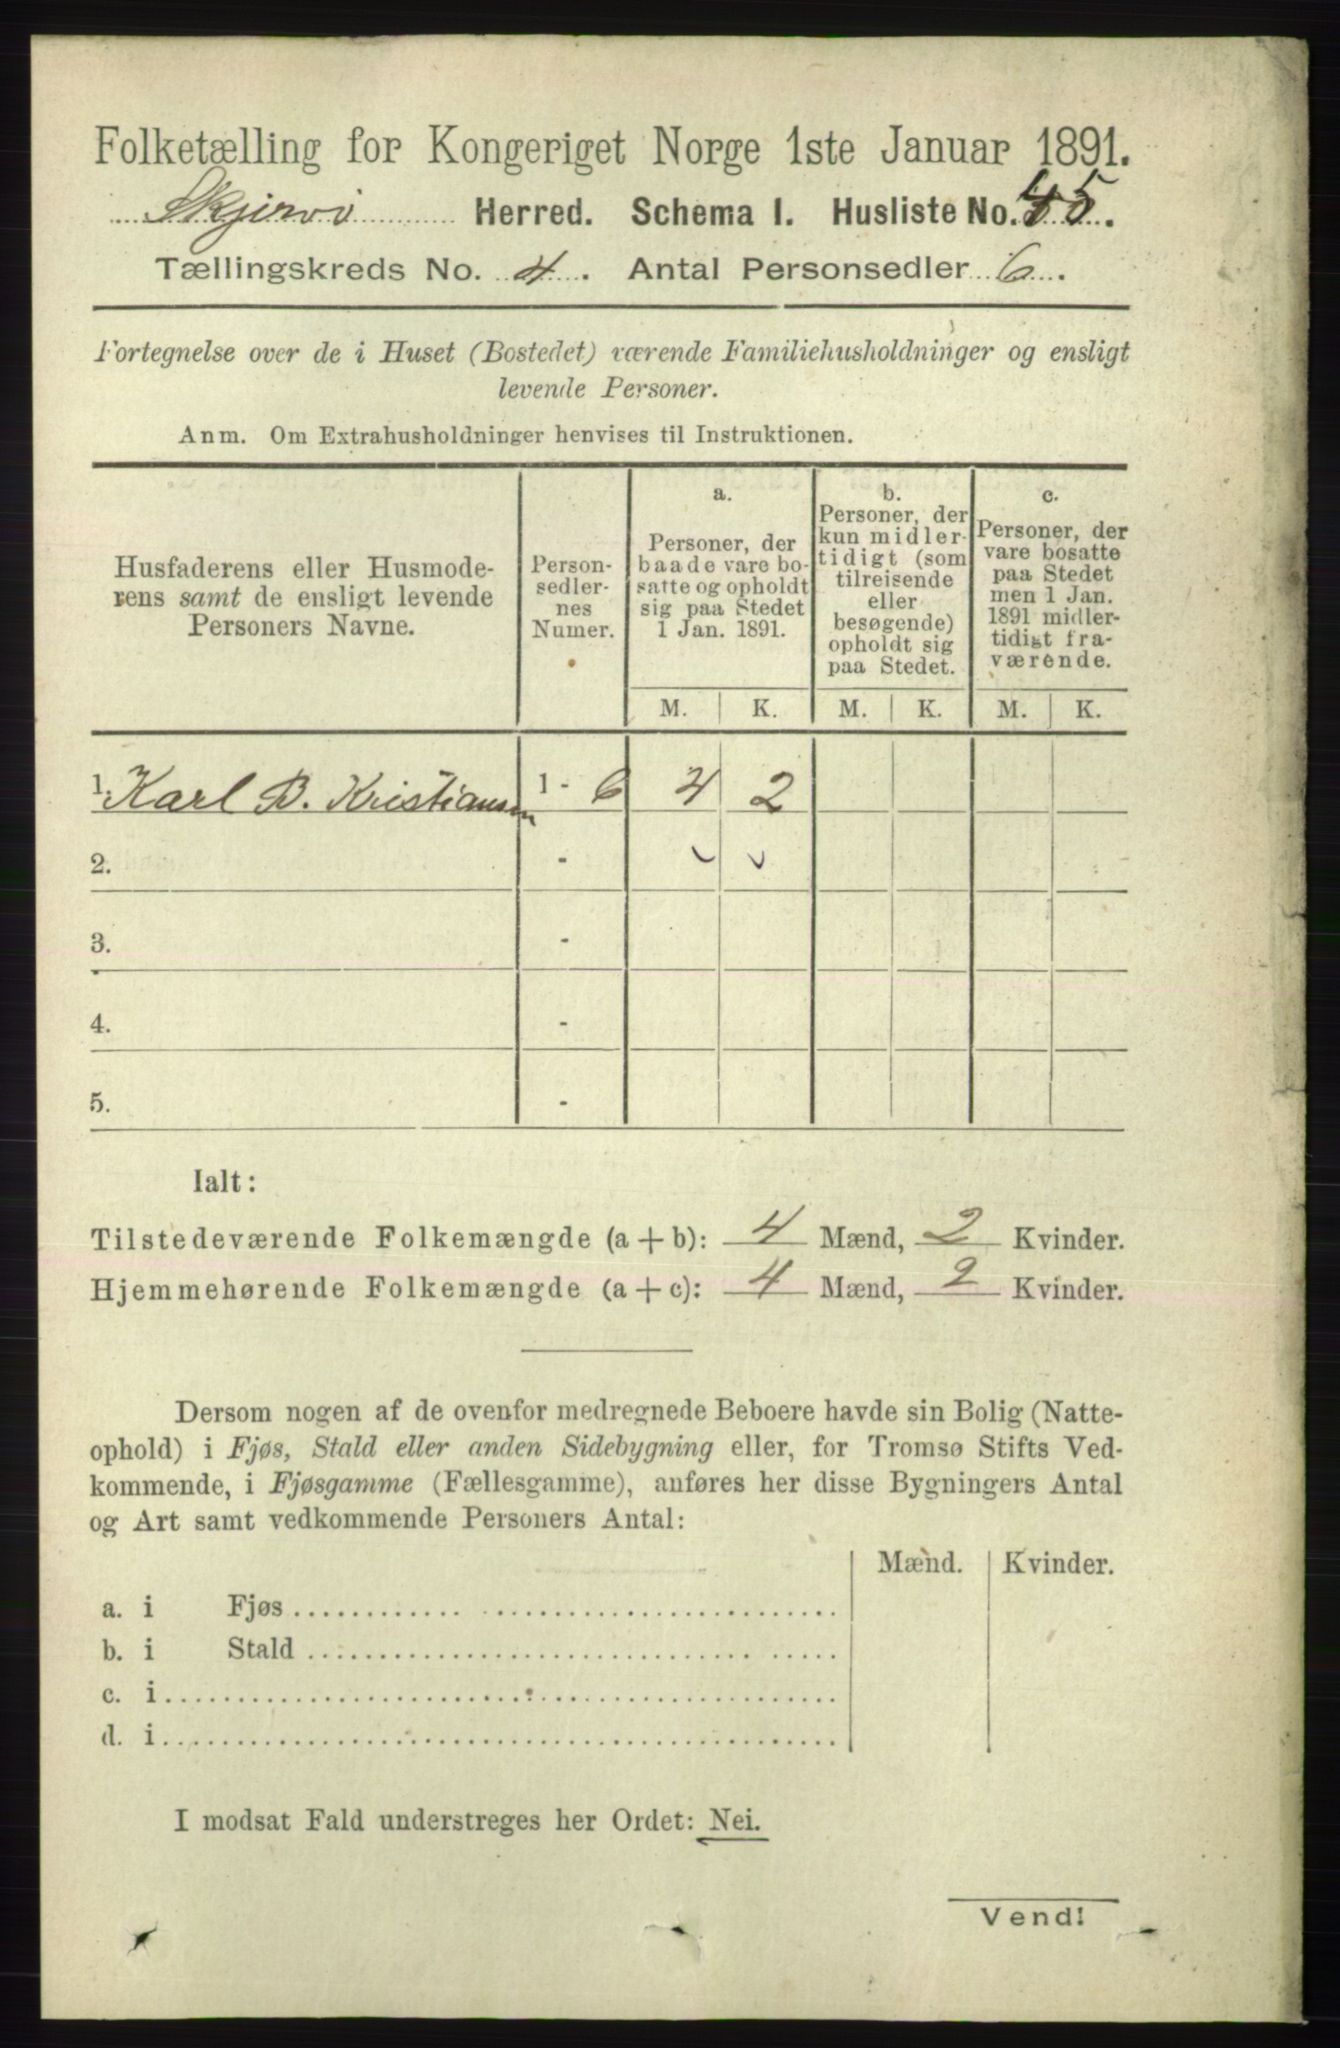 Folketælling for Kongeriget Norge 1ste Januar 1891.
Skjervø Herred. Schema I. Husliste No. 45.
Tællingskreds No. 4. Antal Personsedler 6.
Fortegnelse over de i Huset (Bostedet) værende Familiehusholdninger og ensligt
levende Personer.
Anm. Om Extrahusholdninger henvises til Instruktionen.
Husfaderens eller Husmode-
rens samt de ensligt levende
Personers Navne.
Person-
sedler-
nes
Numer.
a.
Personer, der
baade vare bo-
satte og opholdt
sig paa Stedet
1 Jan. 1891.
b.
Personer, der
kun midler-
tidigt (som
tilreisende
eller
besøgende)
opholdt sig
paa Stedet.
c.
Personer, der
vare bosatte
paa Stedet
men 1 Jan.
1891 midler-
tidigt fra-
værende.
M. K. M. K. M. K.
1. Karl B. Kristiansen 1 - 6 4 2
2. -
3. -
4. -
5. -
Ialt:
Tilstedeværende Folkemængde (a + b): 4 Mænd, 2 Kvinder.
Hjemmehørende Folkemængde (a + c): 4 Mænd, 2 Kvinder.
Dersom nogen af de ovenfor medregnede Beboere havde sin Bolig (Natte-
ophold) i Fjøs, Stald eller anden Sidebygning eller, for Tromsø Stifts Ved-
kommende, i Fjøsgamme (Fællesgamme), anføres her disse Bygningers Antal
og Art samt vedkommende Personers Antal:
Mænd. Kvinder.
a. i Fjøs
b. i Stald
c. i
d. i
I modsat Fald understreges her Ordet: Nei.
Vend!